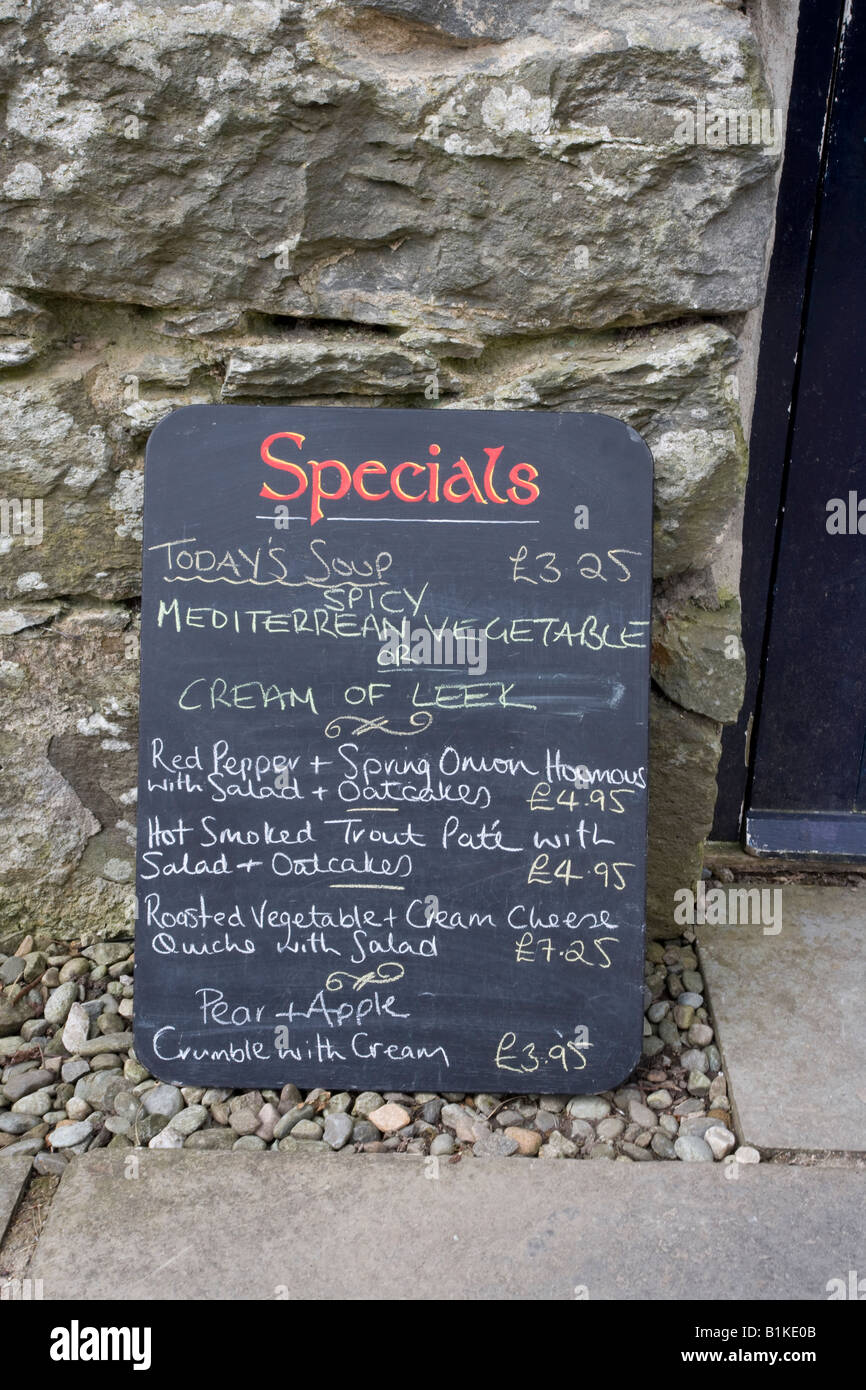 Specials
TODAY'S SOUP £3.25
SPICY
MEDITERREAN VEGETABLE
OR
CREAM OF LEEK
Red Pepper + Spring Onion Houmous
with Salad + Oatcakes £4.95
Hot Smoked Trout Paté with
Salad + Oatcakes £4.95
Roasted Vegetable + Cream Cheese
Quiche with Salad £7.25
Pear + Apple
Crumble with Cream £3.95
alamy
Image ID: B1KE0B
www.alamy.com